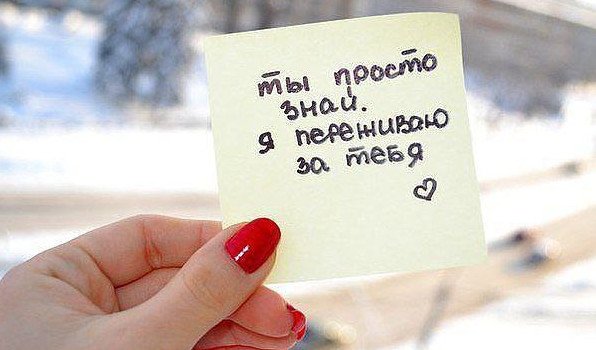 ты просто
знай.
я переживаю
за тебя
♡